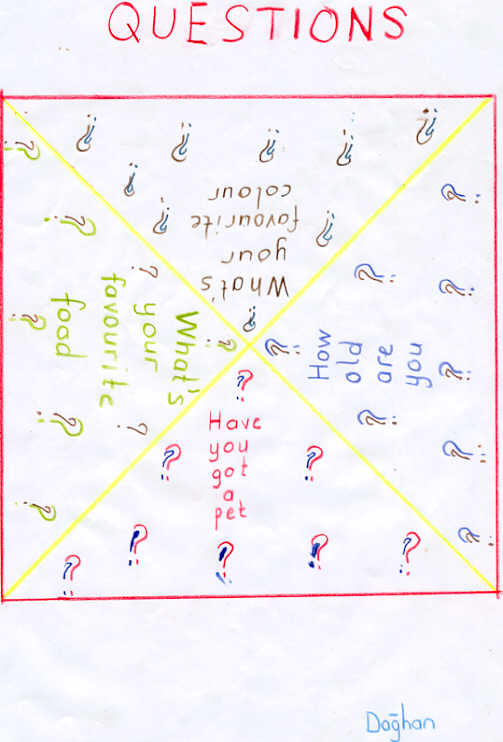 QUESTIONS
What's
your
favourite
colour
What's
your
favourite
food
How
old
are
you
Have
you
got
a
pet
Doğhan